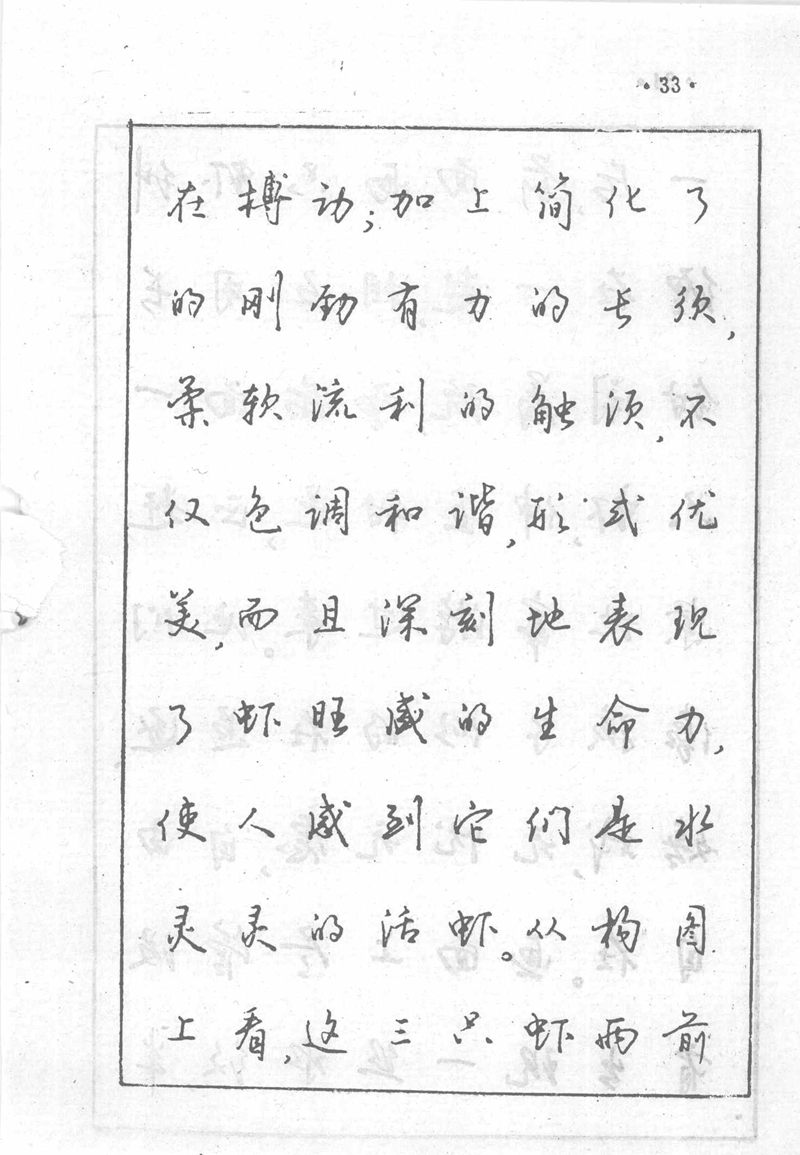 ·33·
在搏动；加上简化了
的刚劲有力的长须，
柔软流利的触须，不
仅色调和谐，形式优
美，而且深刻地表现
了虾旺盛的生命力，
使人感到它们是水
灵灵的活虾。从构图
上看，这三只虾两前